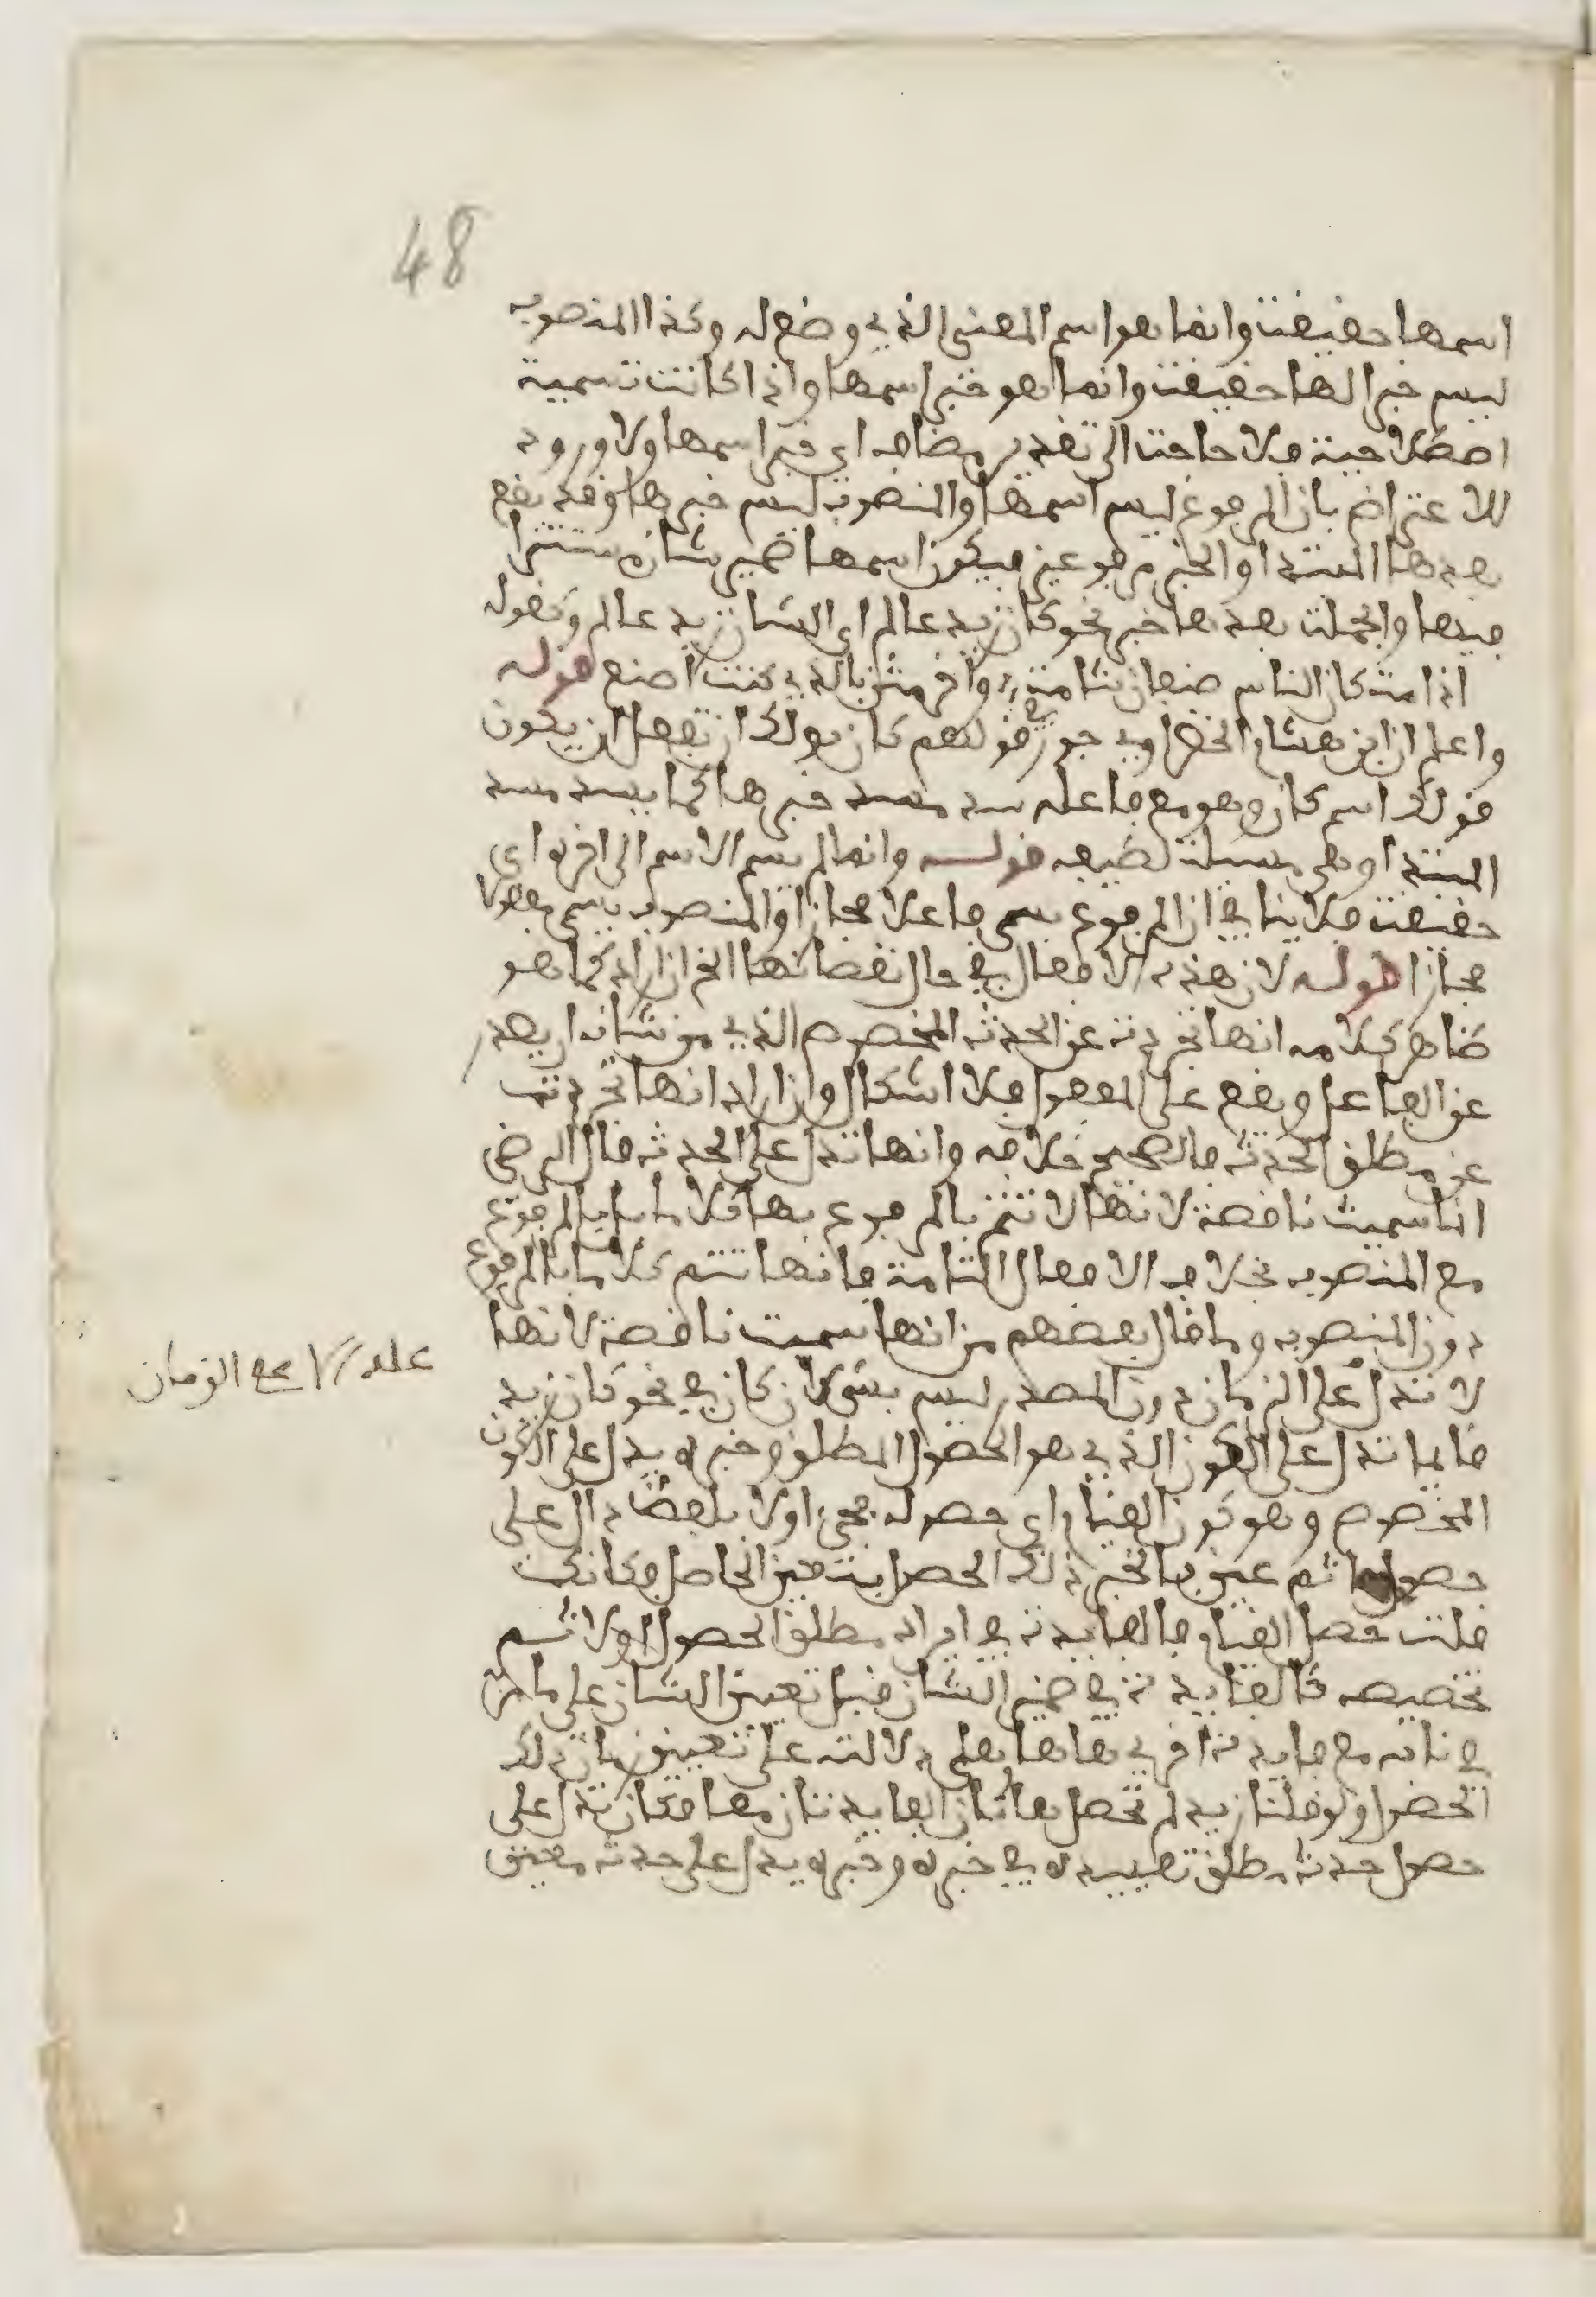 48
اسمها حقيقة وانما هو اسم المعنى الذي وضع له وكذا المنصوب
ليس خبرا لها حقيقة وانما هو خبر اسمها واذا كانت تسمية
اصطلاحية فلا حاجة الى تقدير مضاف اي خبر اسمها ولا ورود
للاعتراض بان المرفوع ليس اسمها والمنصوب ليس خبرها وقد يقع
بعدها المبتدا والخبر مرفوعين فيكون اسمها ضمير شان مستترا
فيها والجملة بعدها خبر نحو كان زيد عالم اي الشان زيد عالم وكقوله
اذا مت كان الناس صنفان شامت، وآخر مثن بالذي كنت اصنع قوله
واعلم ان ابن هشام الخضراوي جوز في قولهم كان يولك ان تفعل ان يكون
قولك اسم كان وهو مع فاعله سد مسد خبرها كما يسد مسد
المبتدا وهي مسئلة لطيفه قوله وانما لم يسم الاسم الى اخره اي
حقيقة فلا ينافي ان المرفوع يسمى فاعلا مجازا والمنصوب يسمى مفعولا
مجازا قوله لان هذه الافعال في حال نقصانها الخ ان اراد كما هو
ظاهر كلامه انها تجردت عن الحدث المخصوص الذي من شانه ان يصدر
عن الفاعل ويقع على المفعول فلا اشكال وان اراد انها تجردت
عن مطلق الحدث فالصحيح خلافه وانها تدل على الحدث قال الرضي
انما سميت ناقصة لانها لا تتم بالمرفوع بها كلاما بل بالمرفوع
مع المنصوب بخلاف الافعال التامة فانها تتم كلاما بالمرفوع
دون المنصوب وما قال بعضهم من انها سميت ناقصة لانها
لا تدل على الزمان دون المصدر ليس بشي لان كان في نحو كان زيد
قائما تدل على الكون الذي هو الحصول المطلق وخبره يدل على الكون
المخصوص وهو كون القيام اي حصوله فجيء اولا بلفظ دال على
حصول ما ثم عين بالخبر ذلك الحصل بتعيين الحاصل فكانك
قلت حصل القيام فالفايدة في ايراد مطلق الحصول اولا ثم
تخصيصه كالفايدة في ضمير الشان قبل تعيين الشان على ما مر
في بابه مع فايدة اخرى هاهنا وهي دلالته على تعيين زمان ذلك
الحصول ولو قلنا زيد لم تحصل هاتان الفايدتان معا فكان تدل على
حصول حدث مطلق تقييده في خبره وخبره يدل على حدث معين
عله لا مع الزمان